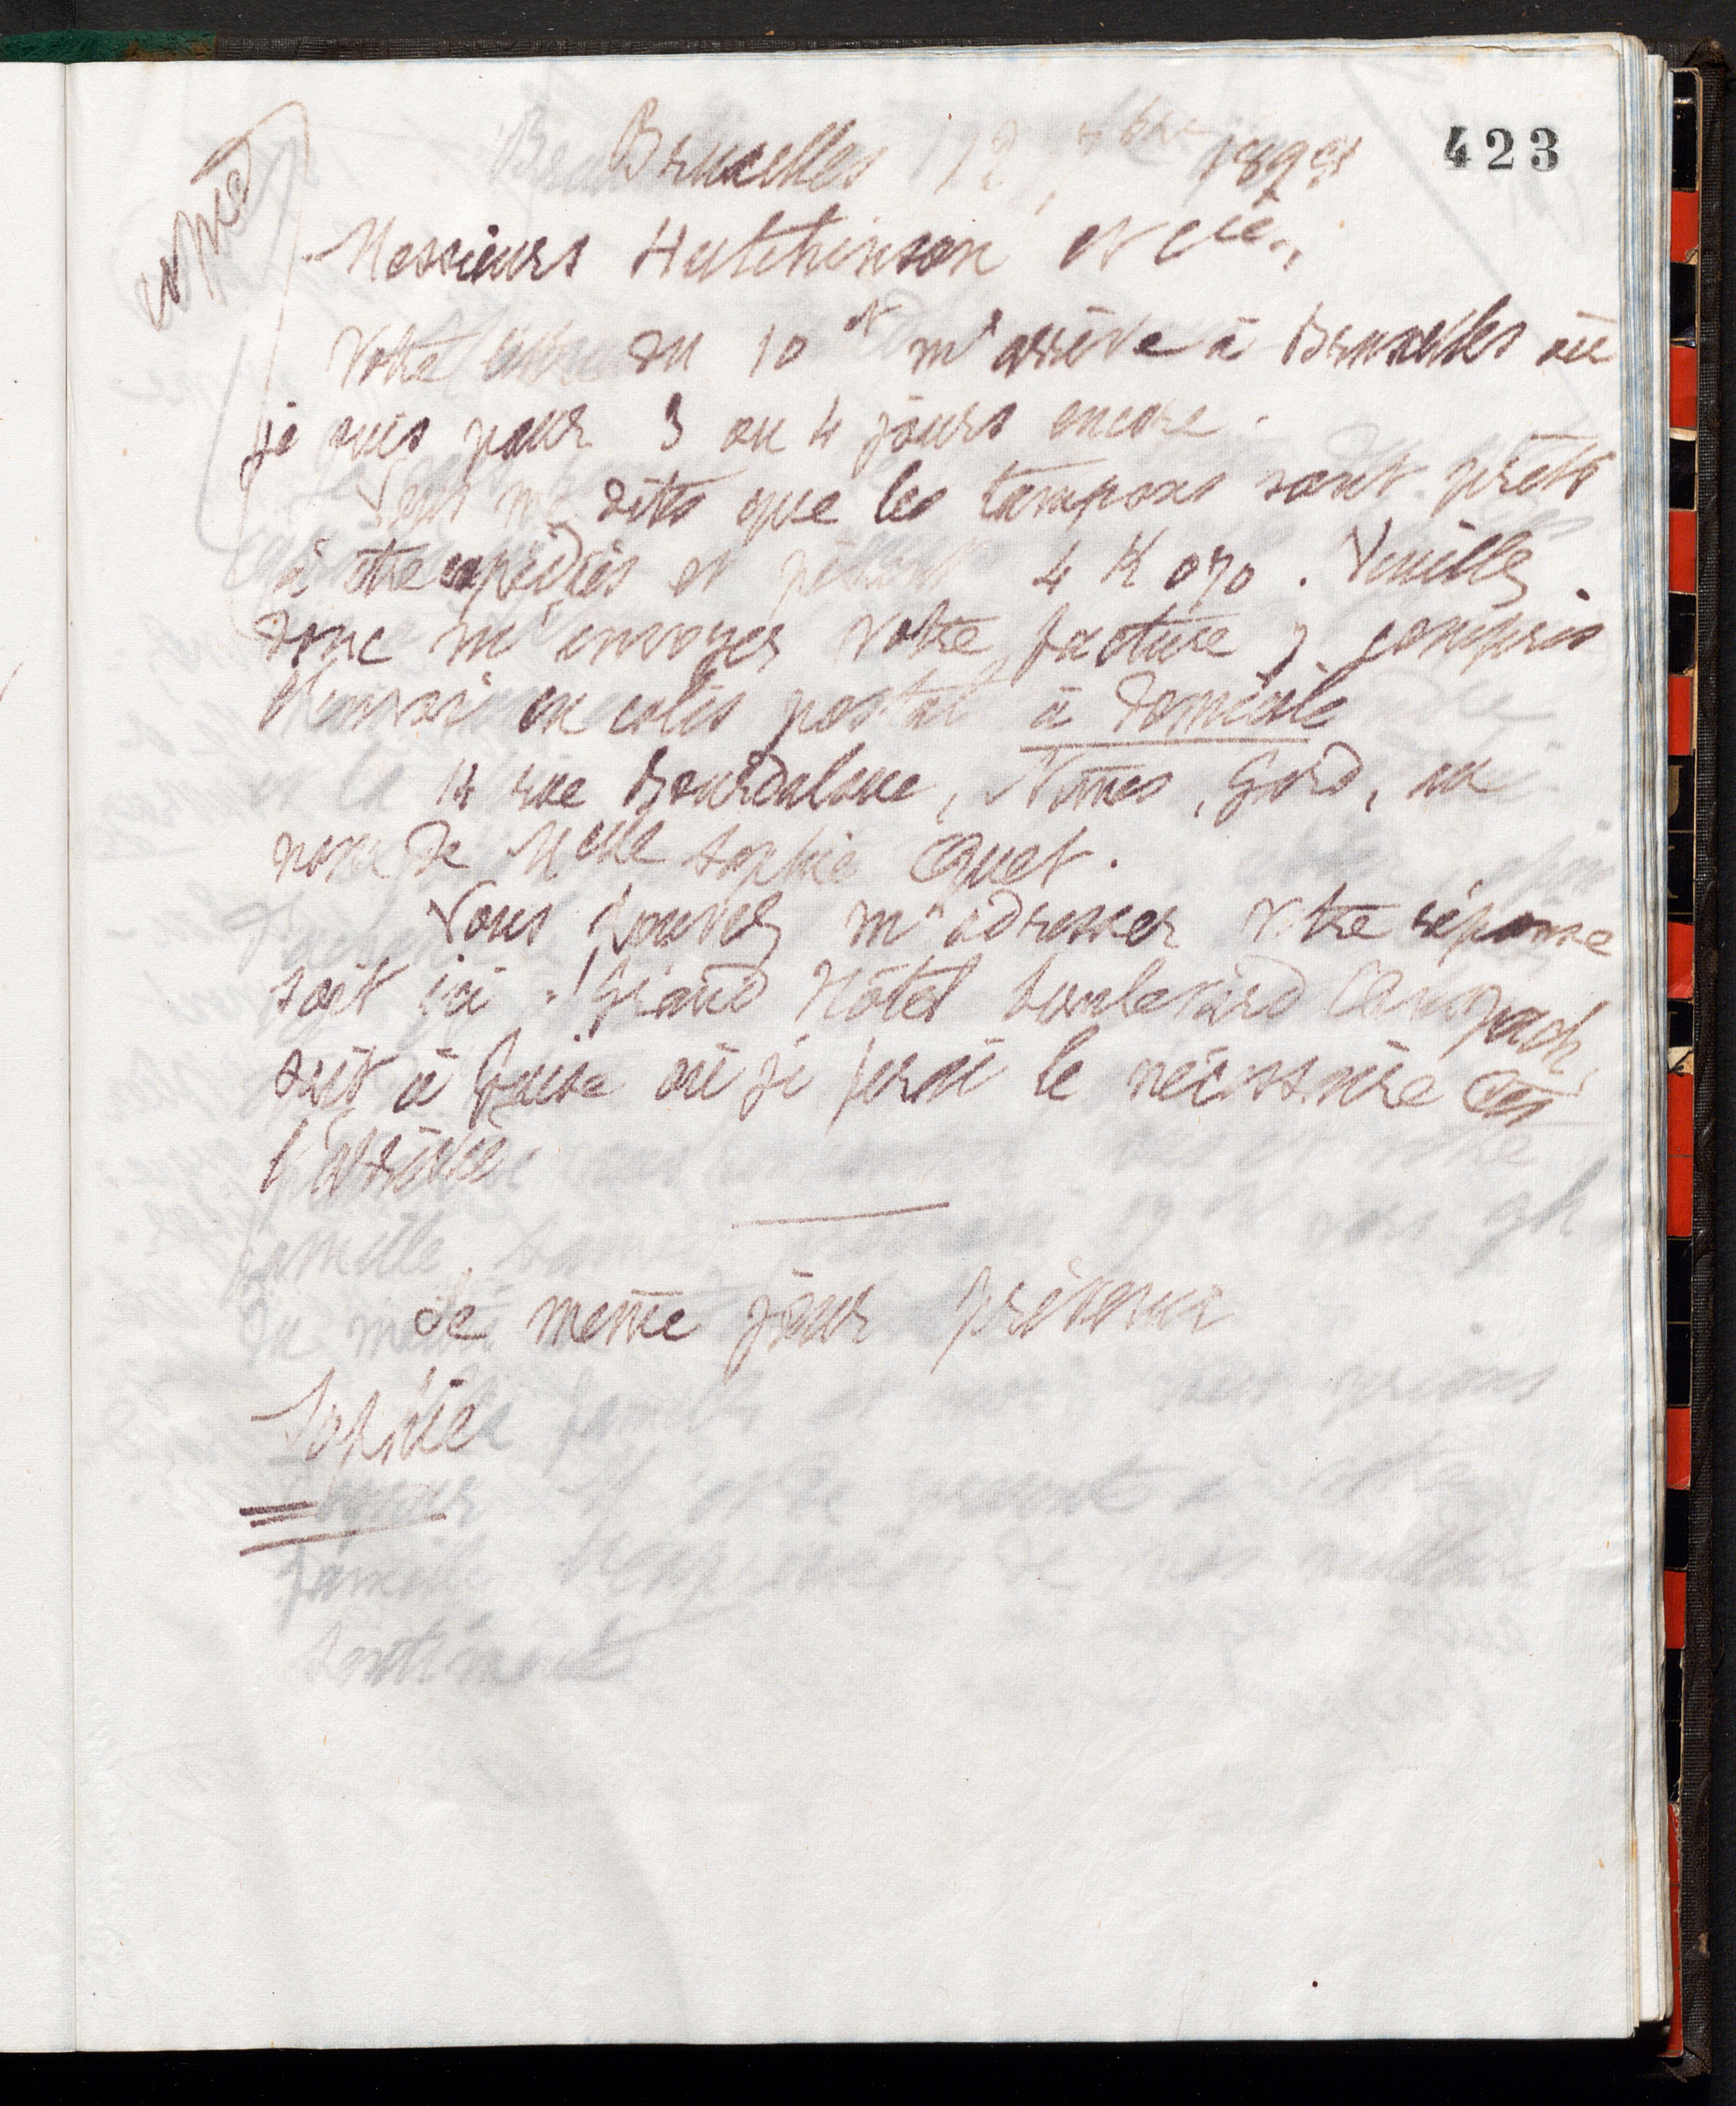 423
Bruxelles 12 8bre 1891
copié
Messieurs Hutchinson et Cie.,
Votre lettre du 10 ct m'arrive à Bruxelles où
je suis pour 3 ou 4 jours encore.
Vous me dites que les tampons sont prêts
à être expédiés et pèsent 4 K 070. Veuillez
donc m'envoyer votre facture y compris
l'envoi en colis postal à domicile
14 rue Bourdaloue, Nîmes, Gard, au
nom de Melle Sophie Quet.
Vous pouvez m'adresser votre réponse
soit ici Grand Hôtel boulevard Anspach,
soit à Guise où je ferai le nécessaire dès
l'arrivée.
Le même jour prévenu
Sophie